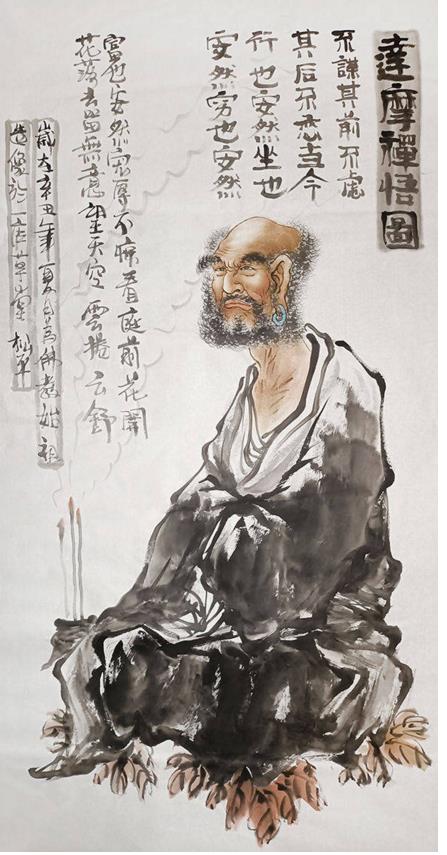 達摩禪悟圖
不謀其前不慮
其后不恋当今
行也安然坐也
安然穷也安然
富也安然宠辱不惊看庭前花開
花落去留無意望天空雲捲云舒
歲在辛丑年夏月為佛教始祖
造像於一草堂